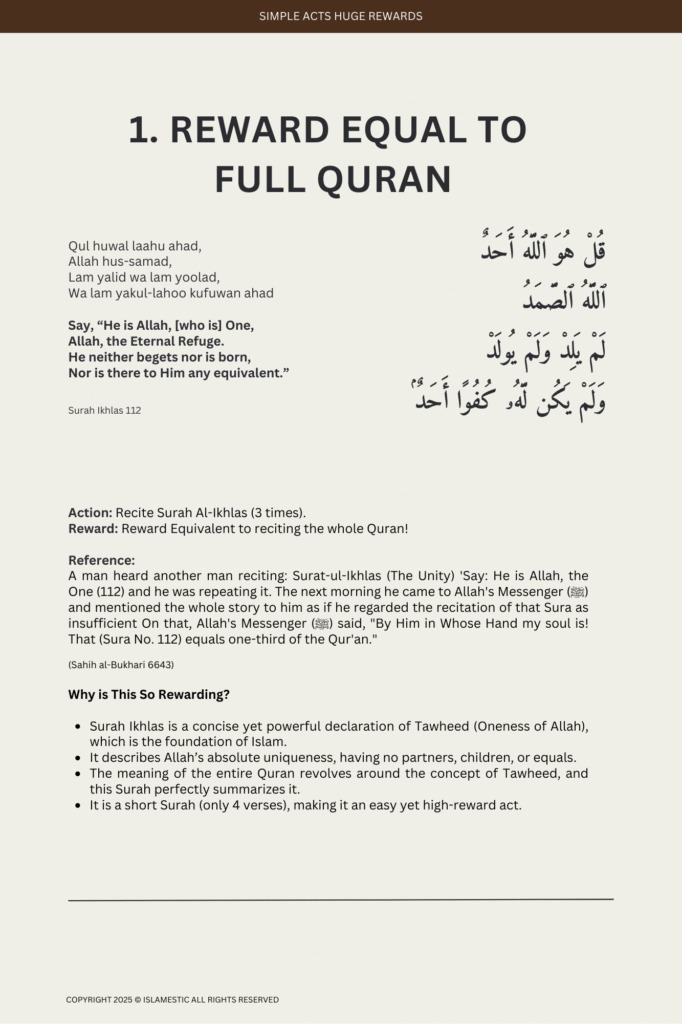 SIMPLE ACTS HUGE REWARDS
1. REWARD EQUAL TO
FULL QURAN
Qul huwal laahu ahad,
Allah hus-samad,
Lam yalid wa lam yoolad,
Wa lam yakul-lahoo kufuwan ahad
Say, “He is Allah, [who is] One,
Allah, the Eternal Refuge.
He neither begets nor is born,
Nor is there to Him any equivalent.”
Surah Ikhlas 112
قُلْ هُوَ ٱللَّهُ أَحَدٌ
ٱللَّهُ ٱلصَّمَدُ
لَمْ يَلِدْ وَلَمْ يُولَدْ
وَلَمْ يَكُن لَّهُۥ كُفُوًا أَحَدٌۢ
Action: Recite Surah Al-Ikhlas (3 times).
Reward: Reward Equivalent to reciting the whole Quran!
Reference:
A man heard another man reciting: Surat-ul-Ikhlas (The Unity) 'Say: He is Allah, the
One (112) and he was repeating it. The next morning he came to Allah's Messenger (ﷺ)
and mentioned the whole story to him as if he regarded the recitation of that Sura as
insufficient On that, Allah's Messenger (ﷺ) said, "By Him in Whose Hand my soul is!
That (Sura No. 112) equals one-third of the Qur'an."
(Sahih al-Bukhari 6643)
Why is This So Rewarding?
• Surah Ikhlas is a concise yet powerful declaration of Tawheed (Oneness of Allah),
which is the foundation of Islam.
• It describes Allah’s absolute uniqueness, having no partners, children, or equals.
• The meaning of the entire Quran revolves around the concept of Tawheed, and
this Surah perfectly summarizes it.
• It is a short Surah (only 4 verses), making it an easy yet high-reward act.
COPYRIGHT 2025 © ISLAMESTIC ALL RIGHTS RESERVED